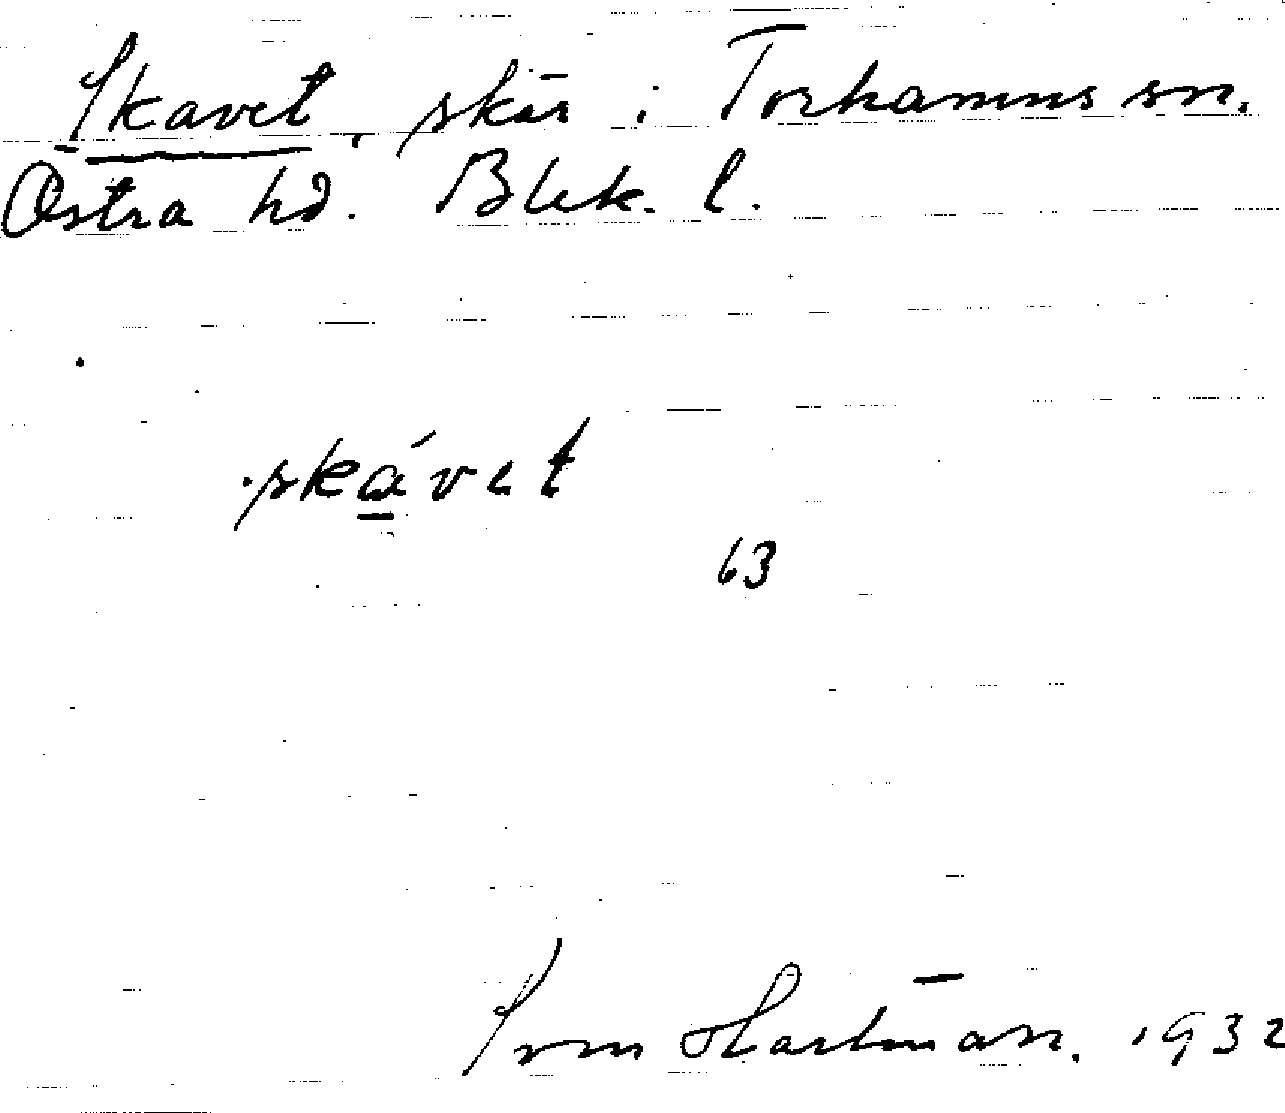 Skavet, skär i Torhamns sn.
Östra hd. Blek. l.
skávet
63
Sven Hartman. 1932